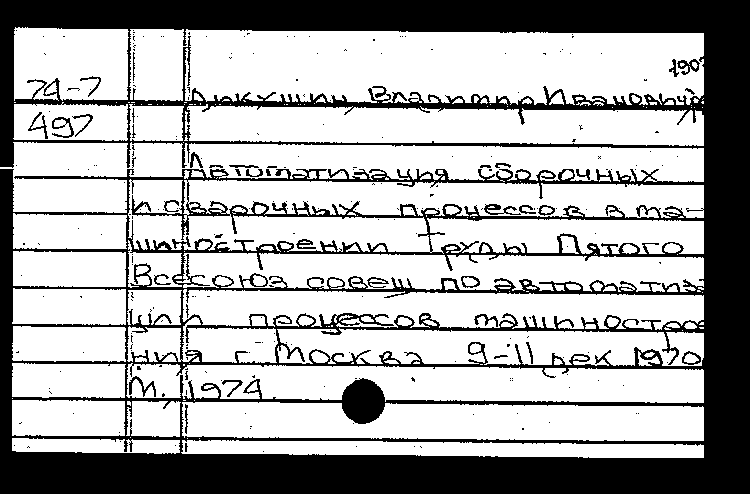 190
74-7
Дикушин, Владимир Иванович
497
Автоматизация сборочных
и сварочных процессов в ма-
шиностроении Труды Пятого
Всесоюз совещ по автоматиза
ции процессов машинострое
ния г. Москва 9-11 дек 1970
М., 1974